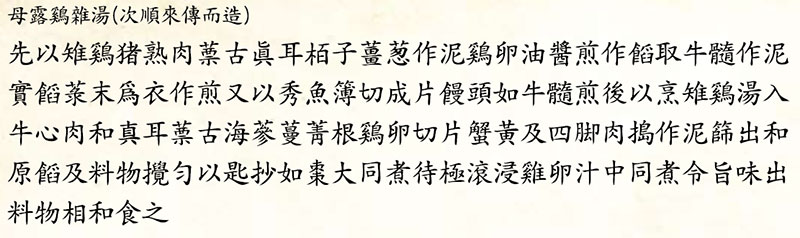 母露鷄雜湯(次順來傳而造)
先以雉鷄猪熟肉藁古眞耳栢子薑葱作泥鷄卵油醬煎作餡取牛髓作泥
實餡菉末爲衣作煎又以秀魚簿切成片饅頭如牛髓煎後以烹雉鷄湯入
牛心肉和真耳藁古海蔘蔓菁根鷄卵切片蟹黃及四脚肉搗作泥篩出和
原餡及料物攪勻以匙抄如棗大同煮待極滾浸雞卵汁中同煮令旨味出
料物相和食之